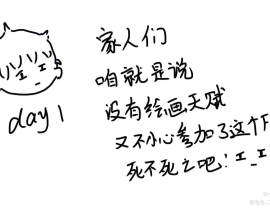 家人们
咱就是说
没有绘画天赋
又不小心参加了这个
死不死之吧！工_工
day 1